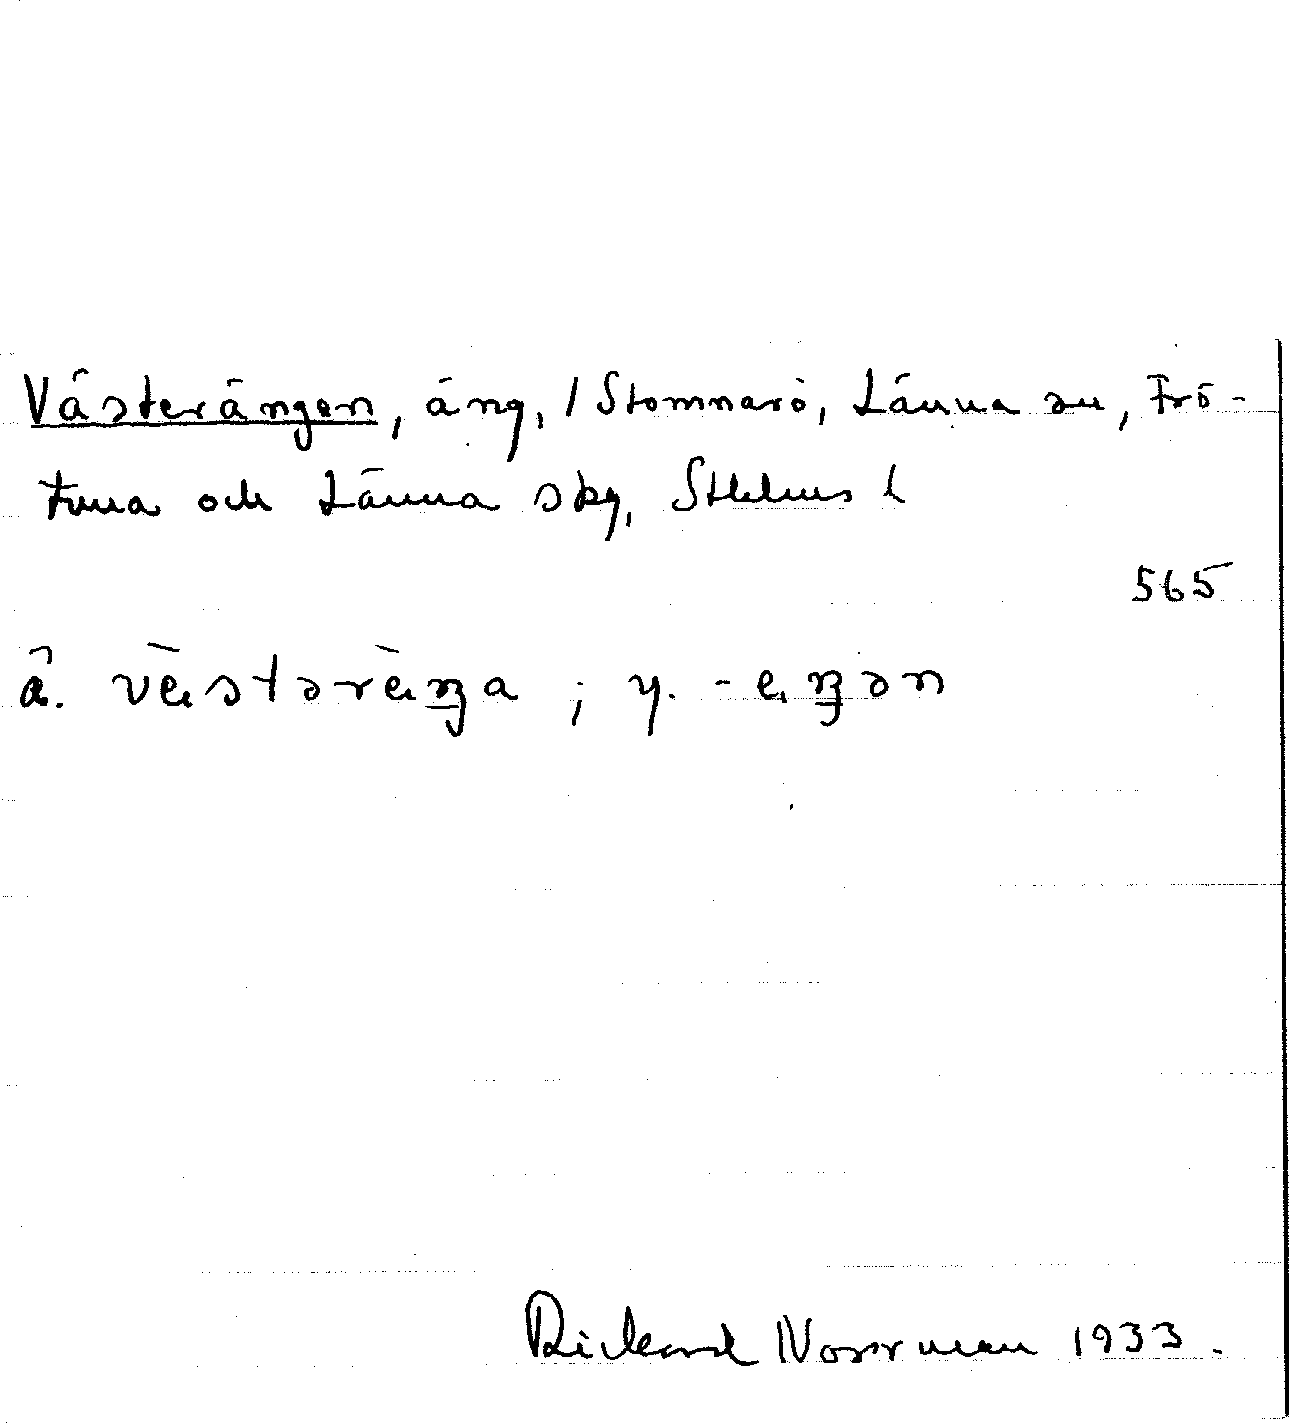 Västerängen, äng, / Stomnarö, Länna sn, Frö-
tuna och Länna skg, Sthlms l
565
ä. vèstərèŋa ; y. -eŋən
Rickard Norrman 1933.